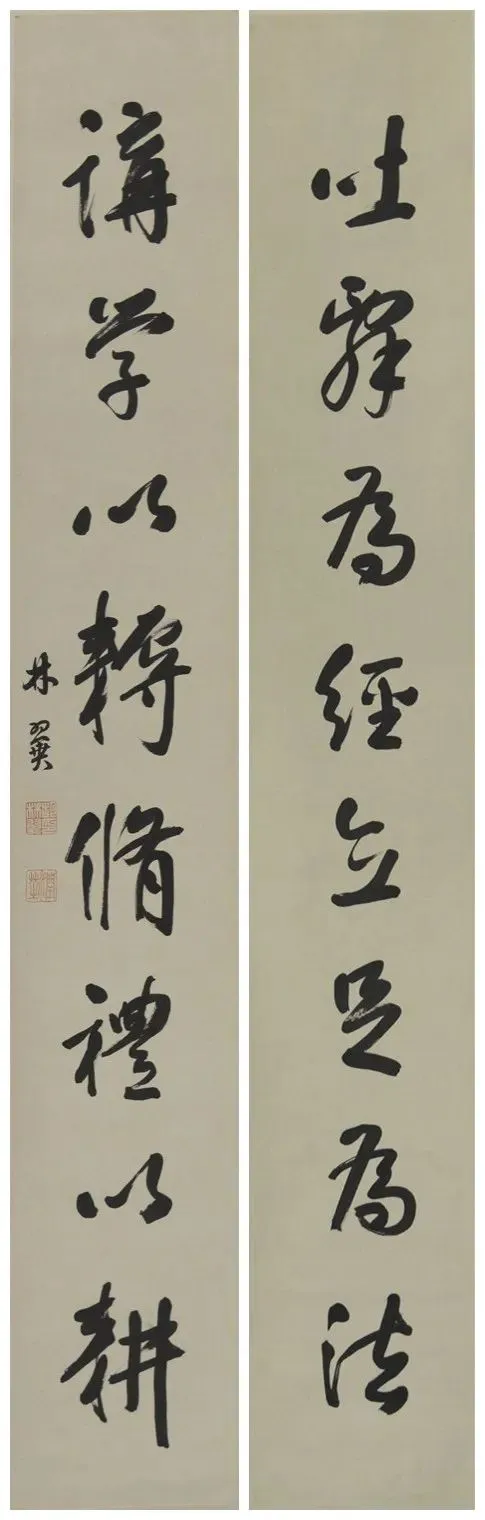 吐辭為經立足為法
講學以耨脩禮以耕
林翼